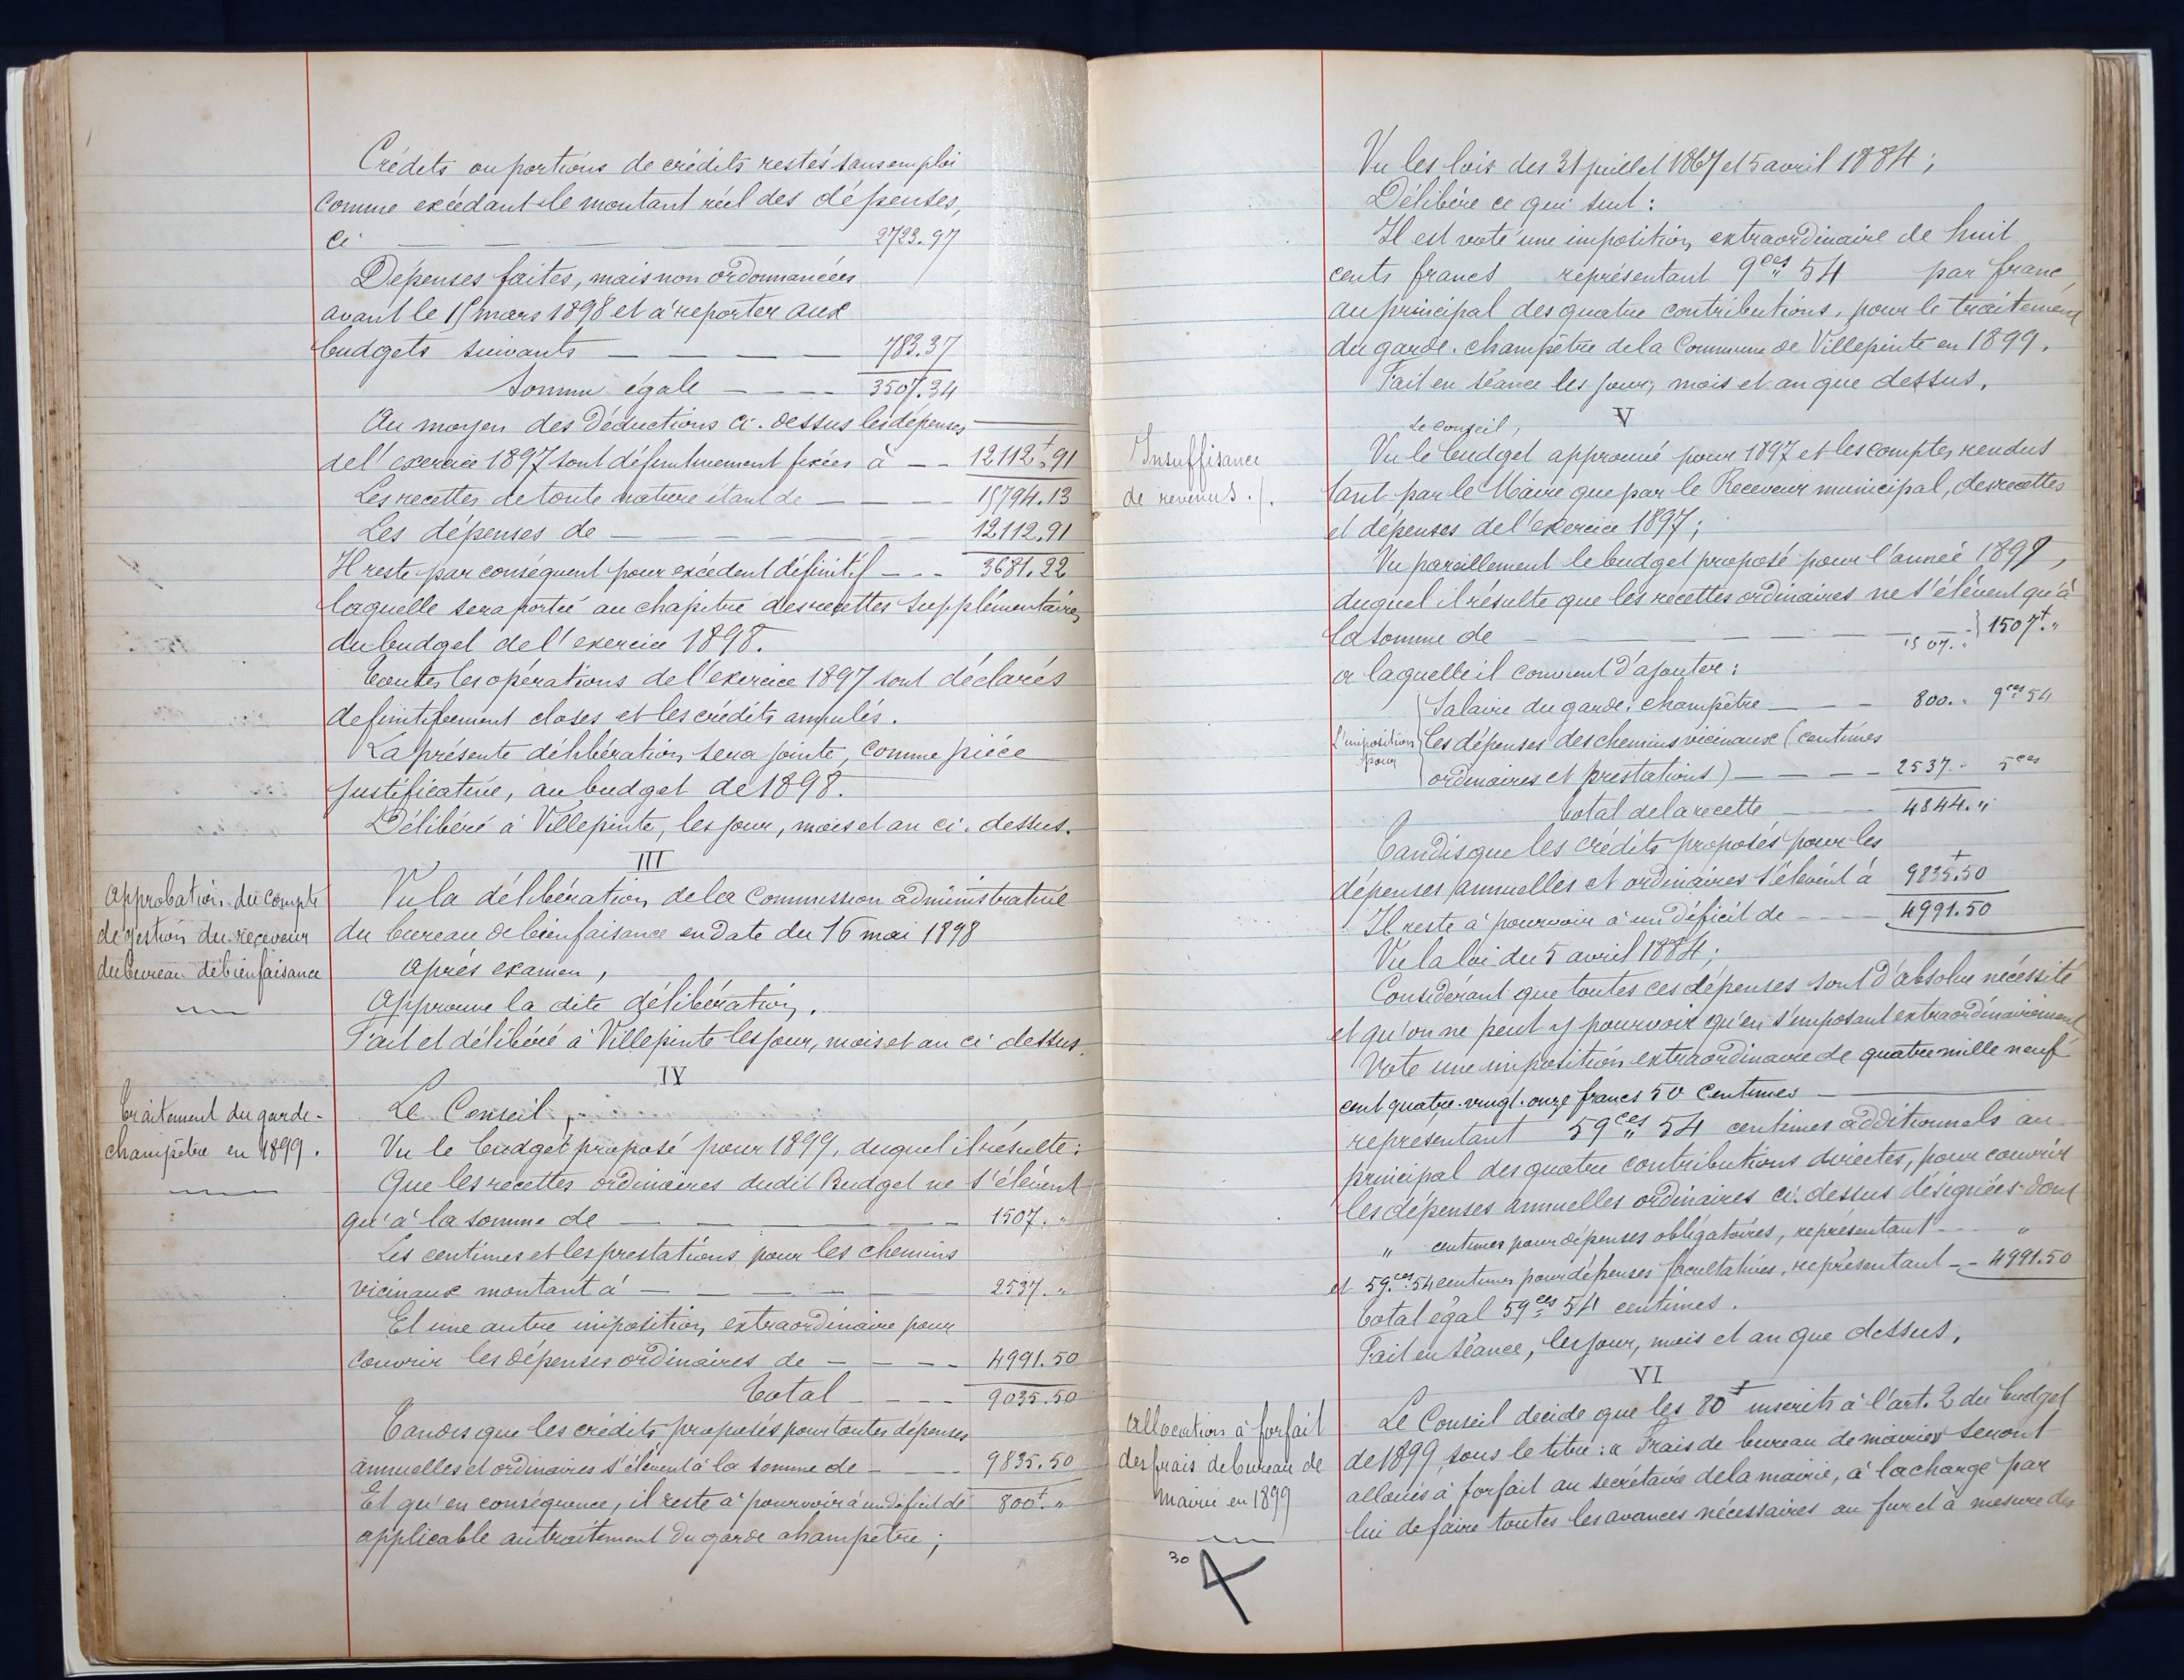 Crédits ou portions de crédits restés sans emploi
comme excédant le montant réel des dépenses,
Ci — — — — 2723.97
Dépenses faites, mais non ordonnancées
avant le 15 mars 1898 et à reporter aux
budgets suivants — — — — 783.37
Somme égale — — — 3507.34
Au moyen des déductions ci-dessus les dépenses
de l'exercice 1897 sont définitivement fixées à — — 12112f,91
Les recettes de toute nature étant de — — — 15794.13
Les dépenses de — — — — 12112.91
Il reste par conséquent pour excédent définitif — — 3681.22
laquelle sera portée au chapitre des recettes supplémentaires
du budget de l'exercice 1898.
Toutes les opérations de l'exercice 1897 sont déclarés
definitivement closes et les crédits annulés.
La présente délibération sera jointe, comme pièce
justificative, au budget de 1898.
Délibéré à Villepinte, les jour, mois et an ci-dessus.
III
Approbation du compte
de gestion du receveur
du bureau de bienfaisance
Vu la délibération de la Commission administrative
du bureau de bienfaisance en date du 16 mai 1898
Après examen,
Approuve la dite délibération.
Fait et délibéré à Villepinte les jour, mois et an ci dessus.
IV
Traitement du garde-
champêtre en 1899.
Le Conseil,
Vu le budget proposé pour 1899, duquel il résulte:
Que les recettes ordinaires dudit Budget ne s'élèvent
qu'à la somme de — — — — 1507. "
Les centimes et les prestations pour les chemins
vicinaux montant à — — — — 2537. "
Et une autre imposition extraordinaire pour
couvrir les dépenses ordinaires de — — — — 4991.50
Total — — — 9035.50
Tandis que les crédits proposés pour toutes dépenses
annuelles et ordinaires s'élèvent à la somme de — — 9835.50
Et qu'en conséquence, il reste à pourvoir à un déficit de 800f. "
applicable au traitement du garde champêtre;
Vu les lois des 31 juillet 1867 et 5 avril 1884;
Délibère ce qui suit:
Il est voté une imposition extraordinaire de huit
cents francs représentant 9ces 54 par franc
au principal des quatre contributions, pour le traitement
du garde-champêtre de la Commune de Villepinte en 1899.
Fait en séance les jour, mois et an que dessus.
V
Insuffisance
de revenus./.
Le conseil,
Vu le budget approuvé pour 1897 et les comptes rendus
tant par le Maire que par le Receveur municipal, des recettes
et dépenses de l'exercice 1897;
Vu pareillement le budget proposé pour l'année 1899,
duquel il résulte que les recettes ordinaires ne s'élèvent qu'à
la somme de — — — — 1507. " } 1507f. "
a laquelle il convient d'ajouter:
Salaire du garde-champêtre — — — 800. " 9ces 54
L'imposition
pour
les dépenses des chemins vicinaux (centimes
ordinaires et prestations) — — — — 2537. " 5ces
total de la recette — — 4844. "
Tandis que les crédits proposés pour les
dépenses annuelles et ordinaires s'élèvent à 9835f.50
Il reste à pourvoir à un déficit de — — — 4991.50
Vu la loi du 5 avril 1884;
Considérant que toutes ces dépenses sont d'absolue nécessité
et qu'on ne peut y pourvoir qu'en s'imposant extraordinairement
Vote une imposition extraordinaire de quatre mille neuf
cent quatre-vingt-onze francs 50 Centimes —
représentant 59ces 54 centimes additionnels au
principal des quatre contributions directes, pour couvrir
les dépenses annuelles ordinaires ci-dessus désignées dont
" centimes pour dépenses obligatoires, représentant — "
et 59.ces 54 centimes pour dépenses facultatives, représentant — 4991.50
total égal 59ces 54 centimes.
Fait en séance, les jour, mois et an que dessus.
VI
Allocation à forfait
des frais de bureau de
mairie en 1899
Le Conseil décide que les 80f inscrits à l'art. 2 du budget
de 1899, sous le titre: « Frais de bureau de mairie » seront
alloués à forfait au secrétaire de la mairie, à la charge par
lui de faire toutes les avances nécessaires au fur et à mesure des
30